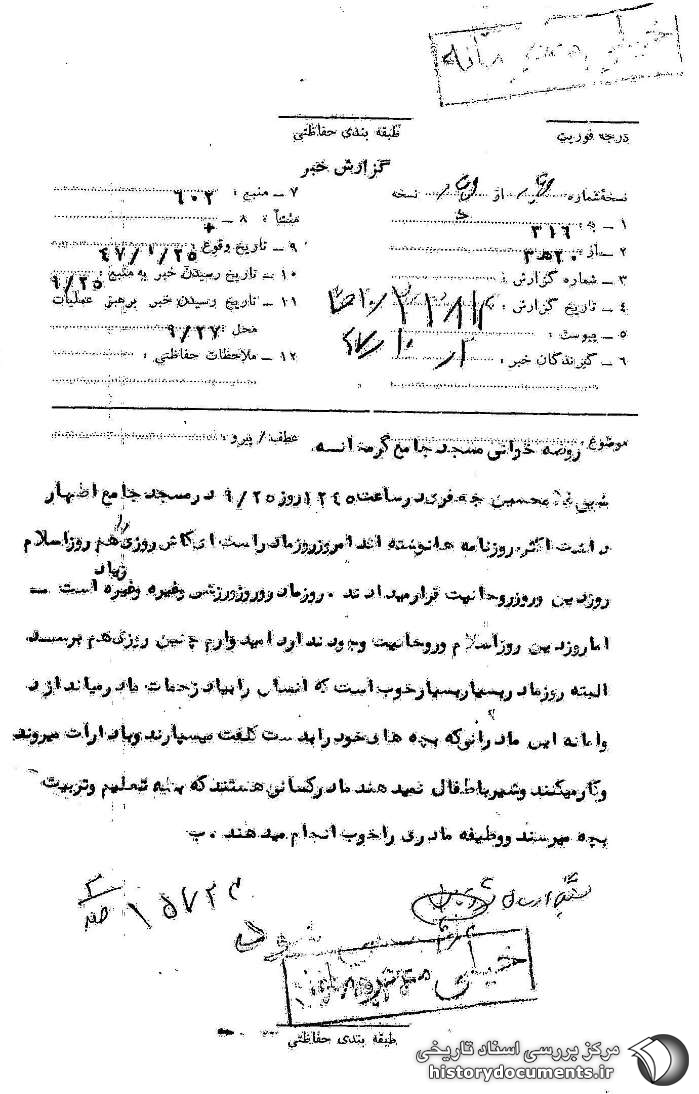 خیلی محرمانه
درجه فوریت
طبقه بندی حفاظتی
گزارش خبر
نسخه شماره از نسخه
۱ - به: ۳۱۶
۲ - از: ۲۰ ه ۳
۳ - شماره گزارش:
۴ - تاریخ گزارش:
۵ - پیوست:
۶ - گیرندگان خبر:
۷ - منبع: ۶۰۲
۸ - منشأ:
۹ - تاریخ وقوع: ۴۷/۱/۲۵
۱۰ - تاریخ رسیدن خبر به منبع: ۹/۲۵
۱۱ - تاریخ رسیدن خبر برهبر عملیات
محل: ۹/۲۷
۱۲ - ملاحظات حفاظتی:
موضوع: روضه خوانی مسجد جامع
عطف / پیرو:
در ساعت ۱۲۴۵ روز ۹/۲۵ در مسجد جامع اظهار
داشت اکثر روزنامه ها نوشته اند امروز روز مادر است ای کاش روزی را هم روز اسلام
روز دین و روز روحانیت قرار میدادند . روز مادر و روز ورزش وغیره وغیره زیاد است -
اما روز دین روز اسلام و روحانیت وجود ندارد امیدوارم چنین روزی هم برسد
البته روز مادر بسیار بسیار خوب است که انسان را بیاد زحمات مادر میاندازد
و اما نه این مادرانی که بچه های خود را بدست کلفت میسپارند و بادارات میروند
و کار میکنند و شیر باطفال نمیدهند مادر کسانی هستند که به تعلیم و تربیت
بچه میرسند و وظیفه مادری را خوب انجام میدهند . ب
۱۵۷۲۴
شود
خیلی محرمانه
طبقه بندی حفاظتی
مرکز بررسی اسناد تاریخی
historydocuments.ir